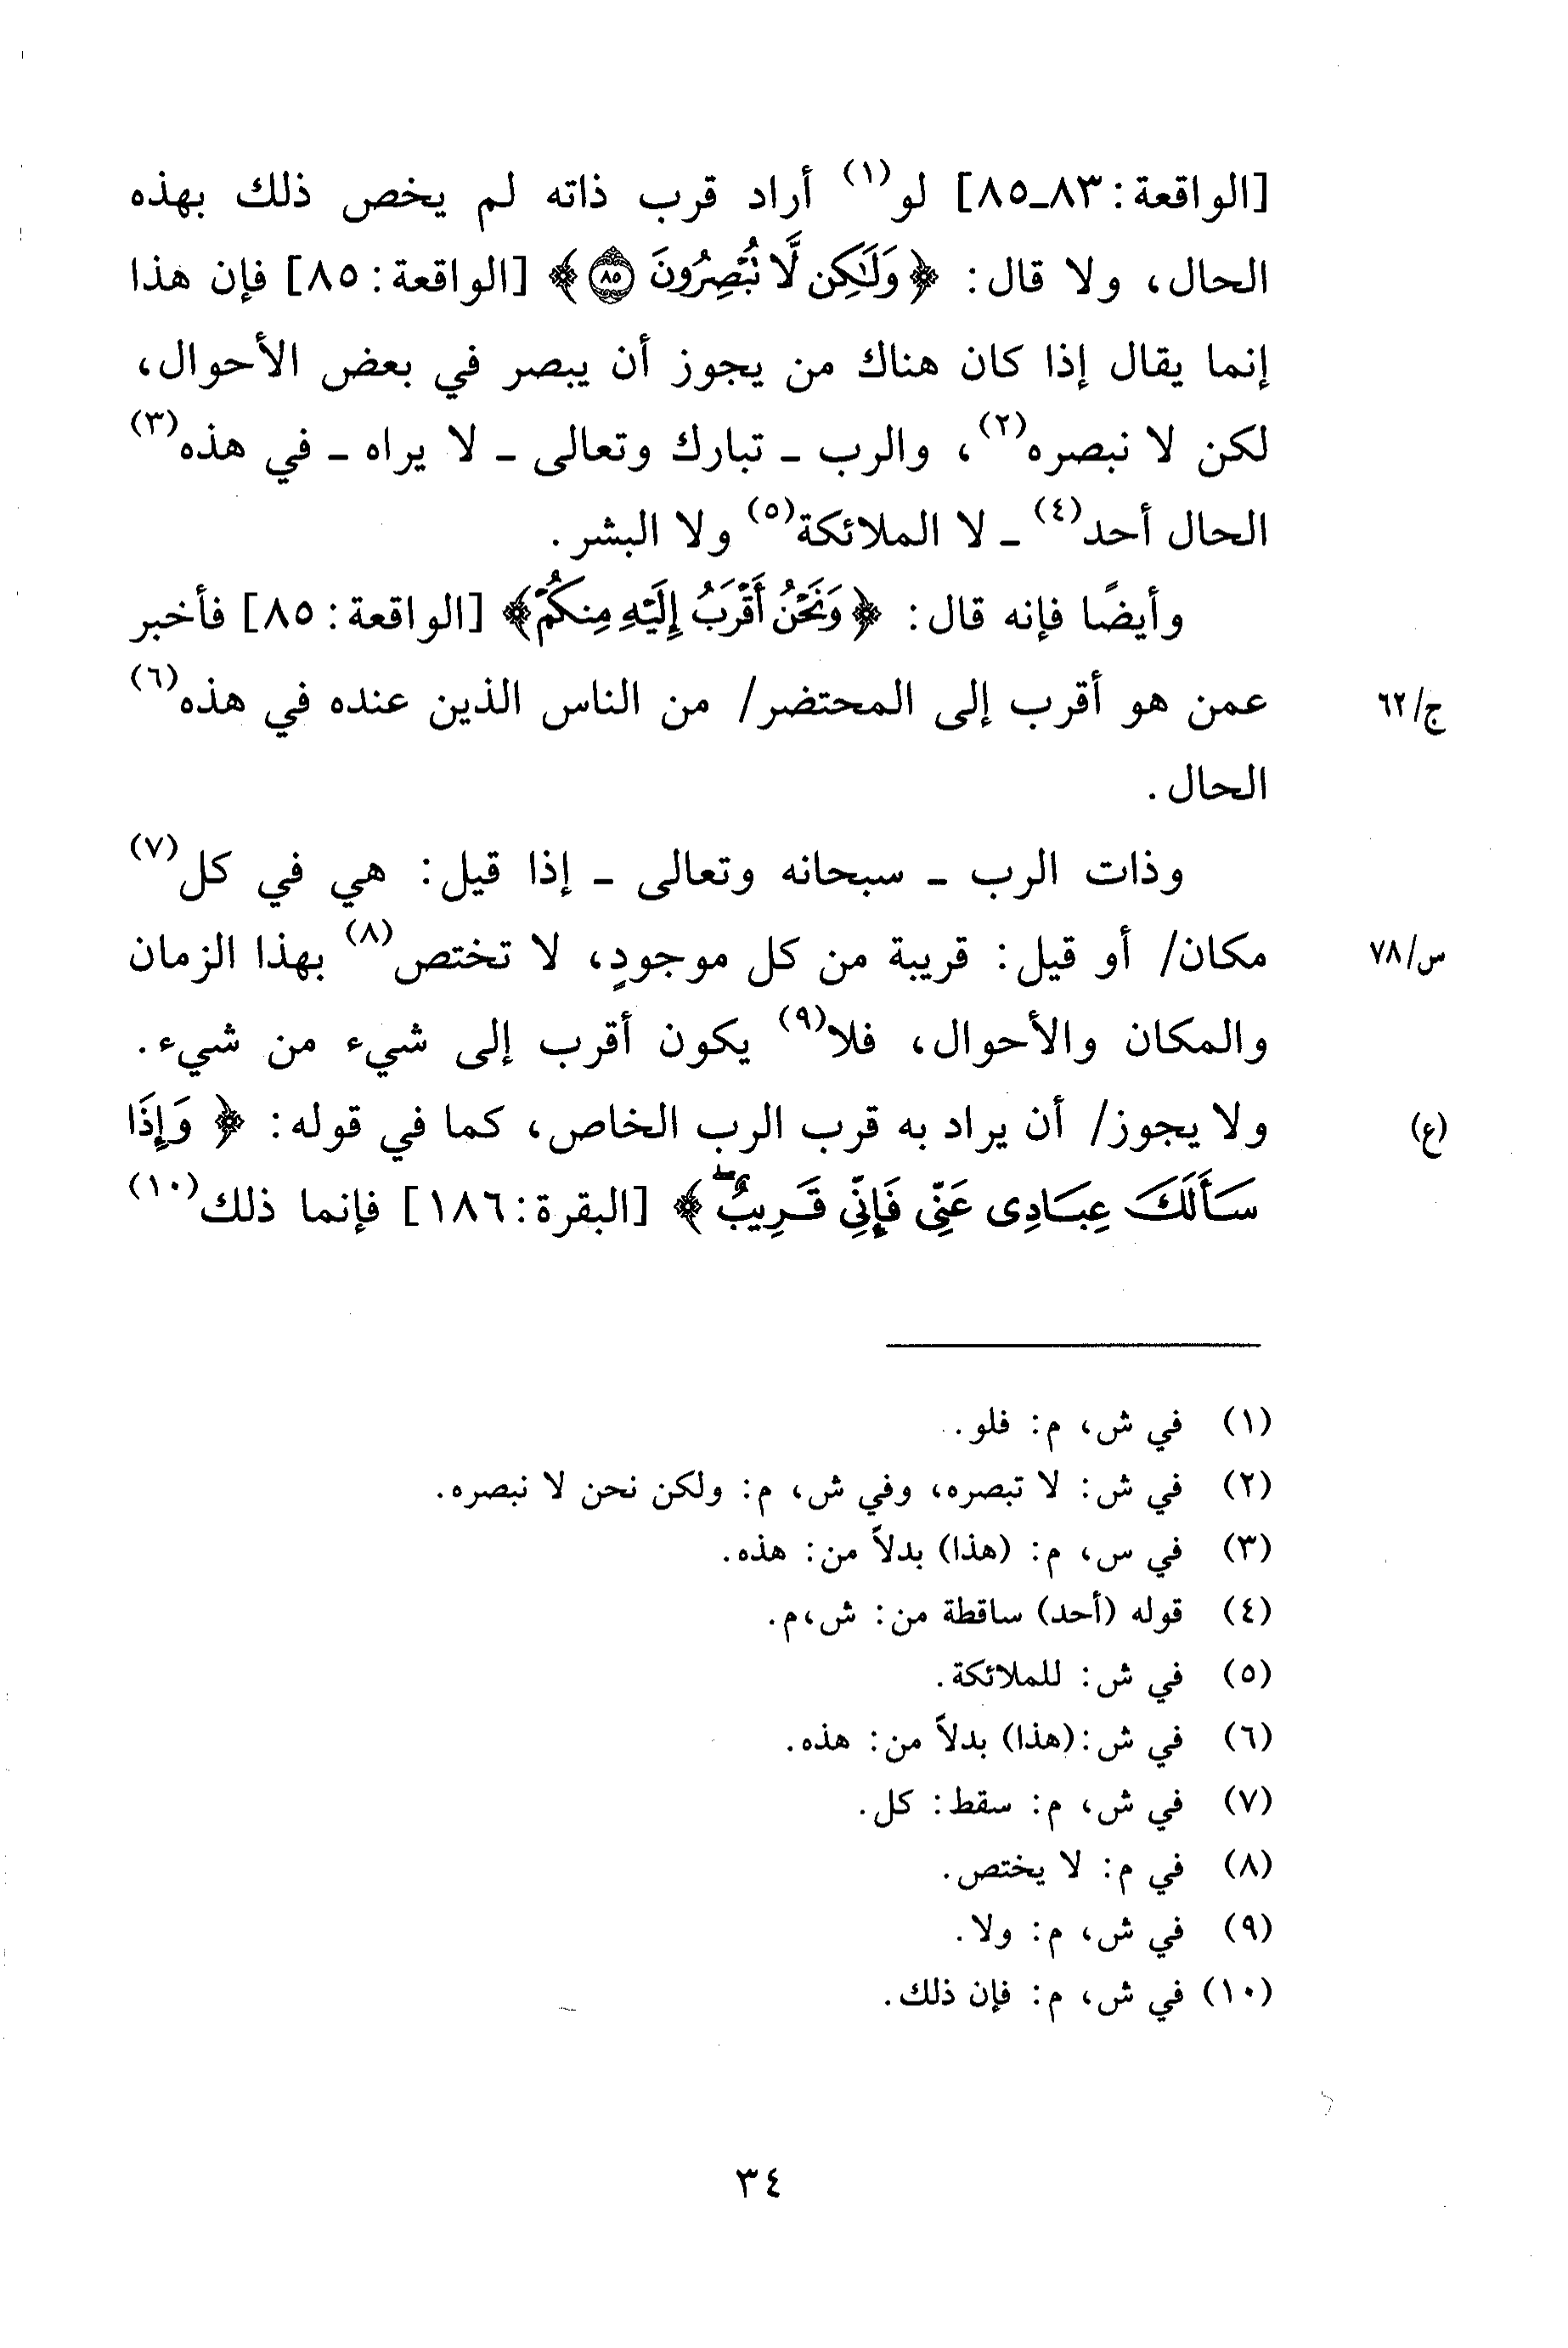 [الواقعة: ٨٣ـ٨٥] لو(١) أراد قرب ذاته لم يخص ذلك بهذه
الحال، ولا قال: ﴿وَلَٰكِن لَّا تُبْصِرُونَ ٨٥﴾ [الواقعة: ٨٥] فإن هذا
إنما يقال إذا كان هناك من يجوز أن يبصر في بعض الأحوال،
لكن لا نبصره(٢)، والرب ـ تبارك وتعالى ـ لا يراه ـ في هذه(٣)
الحال أحد(٤) ـ لا الملائكة(٥) ولا البشر.
وأيضًا فإنه قال: ﴿وَنَحْنُ أَقْرَبُ إِلَيْهِ مِنكُمْ﴾ [الواقعة: ٨٥] فأخبر
عمن هو أقرب إلى المحتضر/ من الناس الذين عنده في هذه(٦) ج/٦٢
الحال.
وذات الرب ـ سبحانه وتعالى ـ إذا قيل: هي في كل(٧)
مكان/ أو قيل: قريبة من كل موجودٍ، لا تختص(٨) بهذا الزمان س/٧٨
والمكان والأحوال، فلا(٩) يكون أقرب إلى شيء من شيء.
ولا يجوز/ أن يراد به قرب الرب الخاص، كما في قوله: ﴿وَإِذَا (ع)
سَأَلَكَ عِبَادِى عَنِّى فَإِنِّى قَرِيبٌۖ﴾ [البقرة: ١٨٦] فإنما ذلك(١٠)
(١) في ش، م: فلو.
(٢) في ش: لا تبصره، وفي ش، م: ولكن نحن لا نبصره.
(٣) في س، م: (هذا) بدلاً من: هذه.
(٤) قوله (أحد) ساقطة من: ش،م.
(٥) في ش: للملائكة.
(٦) في ش:(هذا) بدلاً من: هذه.
(٧) في ش، م: سقط: كل.
(٨) في م: لا يختص.
(٩) في ش، م: ولا.
(١٠) في ش، م: فإن ذلك.
٣٤